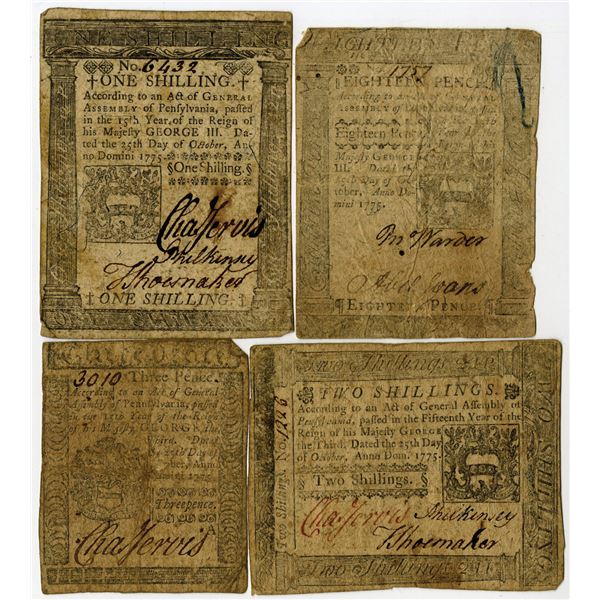 ONE SHILLING
No. 6432
ONE SHILLING.
According to an Act of GENERAL
ASSEMBLY of Pensylvania, passed
in the 15th Year, of the Reign of
his Majesty GEORGE III. Da-
ted the 25th Day of October, An-
no Domini 1775.
One Shilling.
Cha Jervis
Phil Kinsey
J Shoemaker
ONE SHILLING.
EIGHTEEN PENCE
1157
EIGHTEEN PENCE.
According to an
ASSEMBLY of
Eighteen Pence
Majesty GEORGE
III. Dated
tober, Anno Domi-
ni 1775.
Warder
Evans
EIGHTEEN PENCE
3010 Three Pence.
According to an Act of General
Assembly of Pennsylvania, passed
Year of the
his Majesty GEORGE the
Third. Dated
25th Day
Anno
1775
Threepence.
A
Cha Jervis
Two Shillings
Two Shillings. No. 1226
TWO SHILLINGS.
According to an Act of General Assembly of
Pensylvania, passed in the Fifteenth Year of the
Reign of his Majesty GEORGE
the Third. Dated the 25th Day
of October, Anno Dom. 1775.
Two Shillings.
Cha Jervis Phil Kinsey
J Shoemaker
TWO SHILLING
Two Shillings